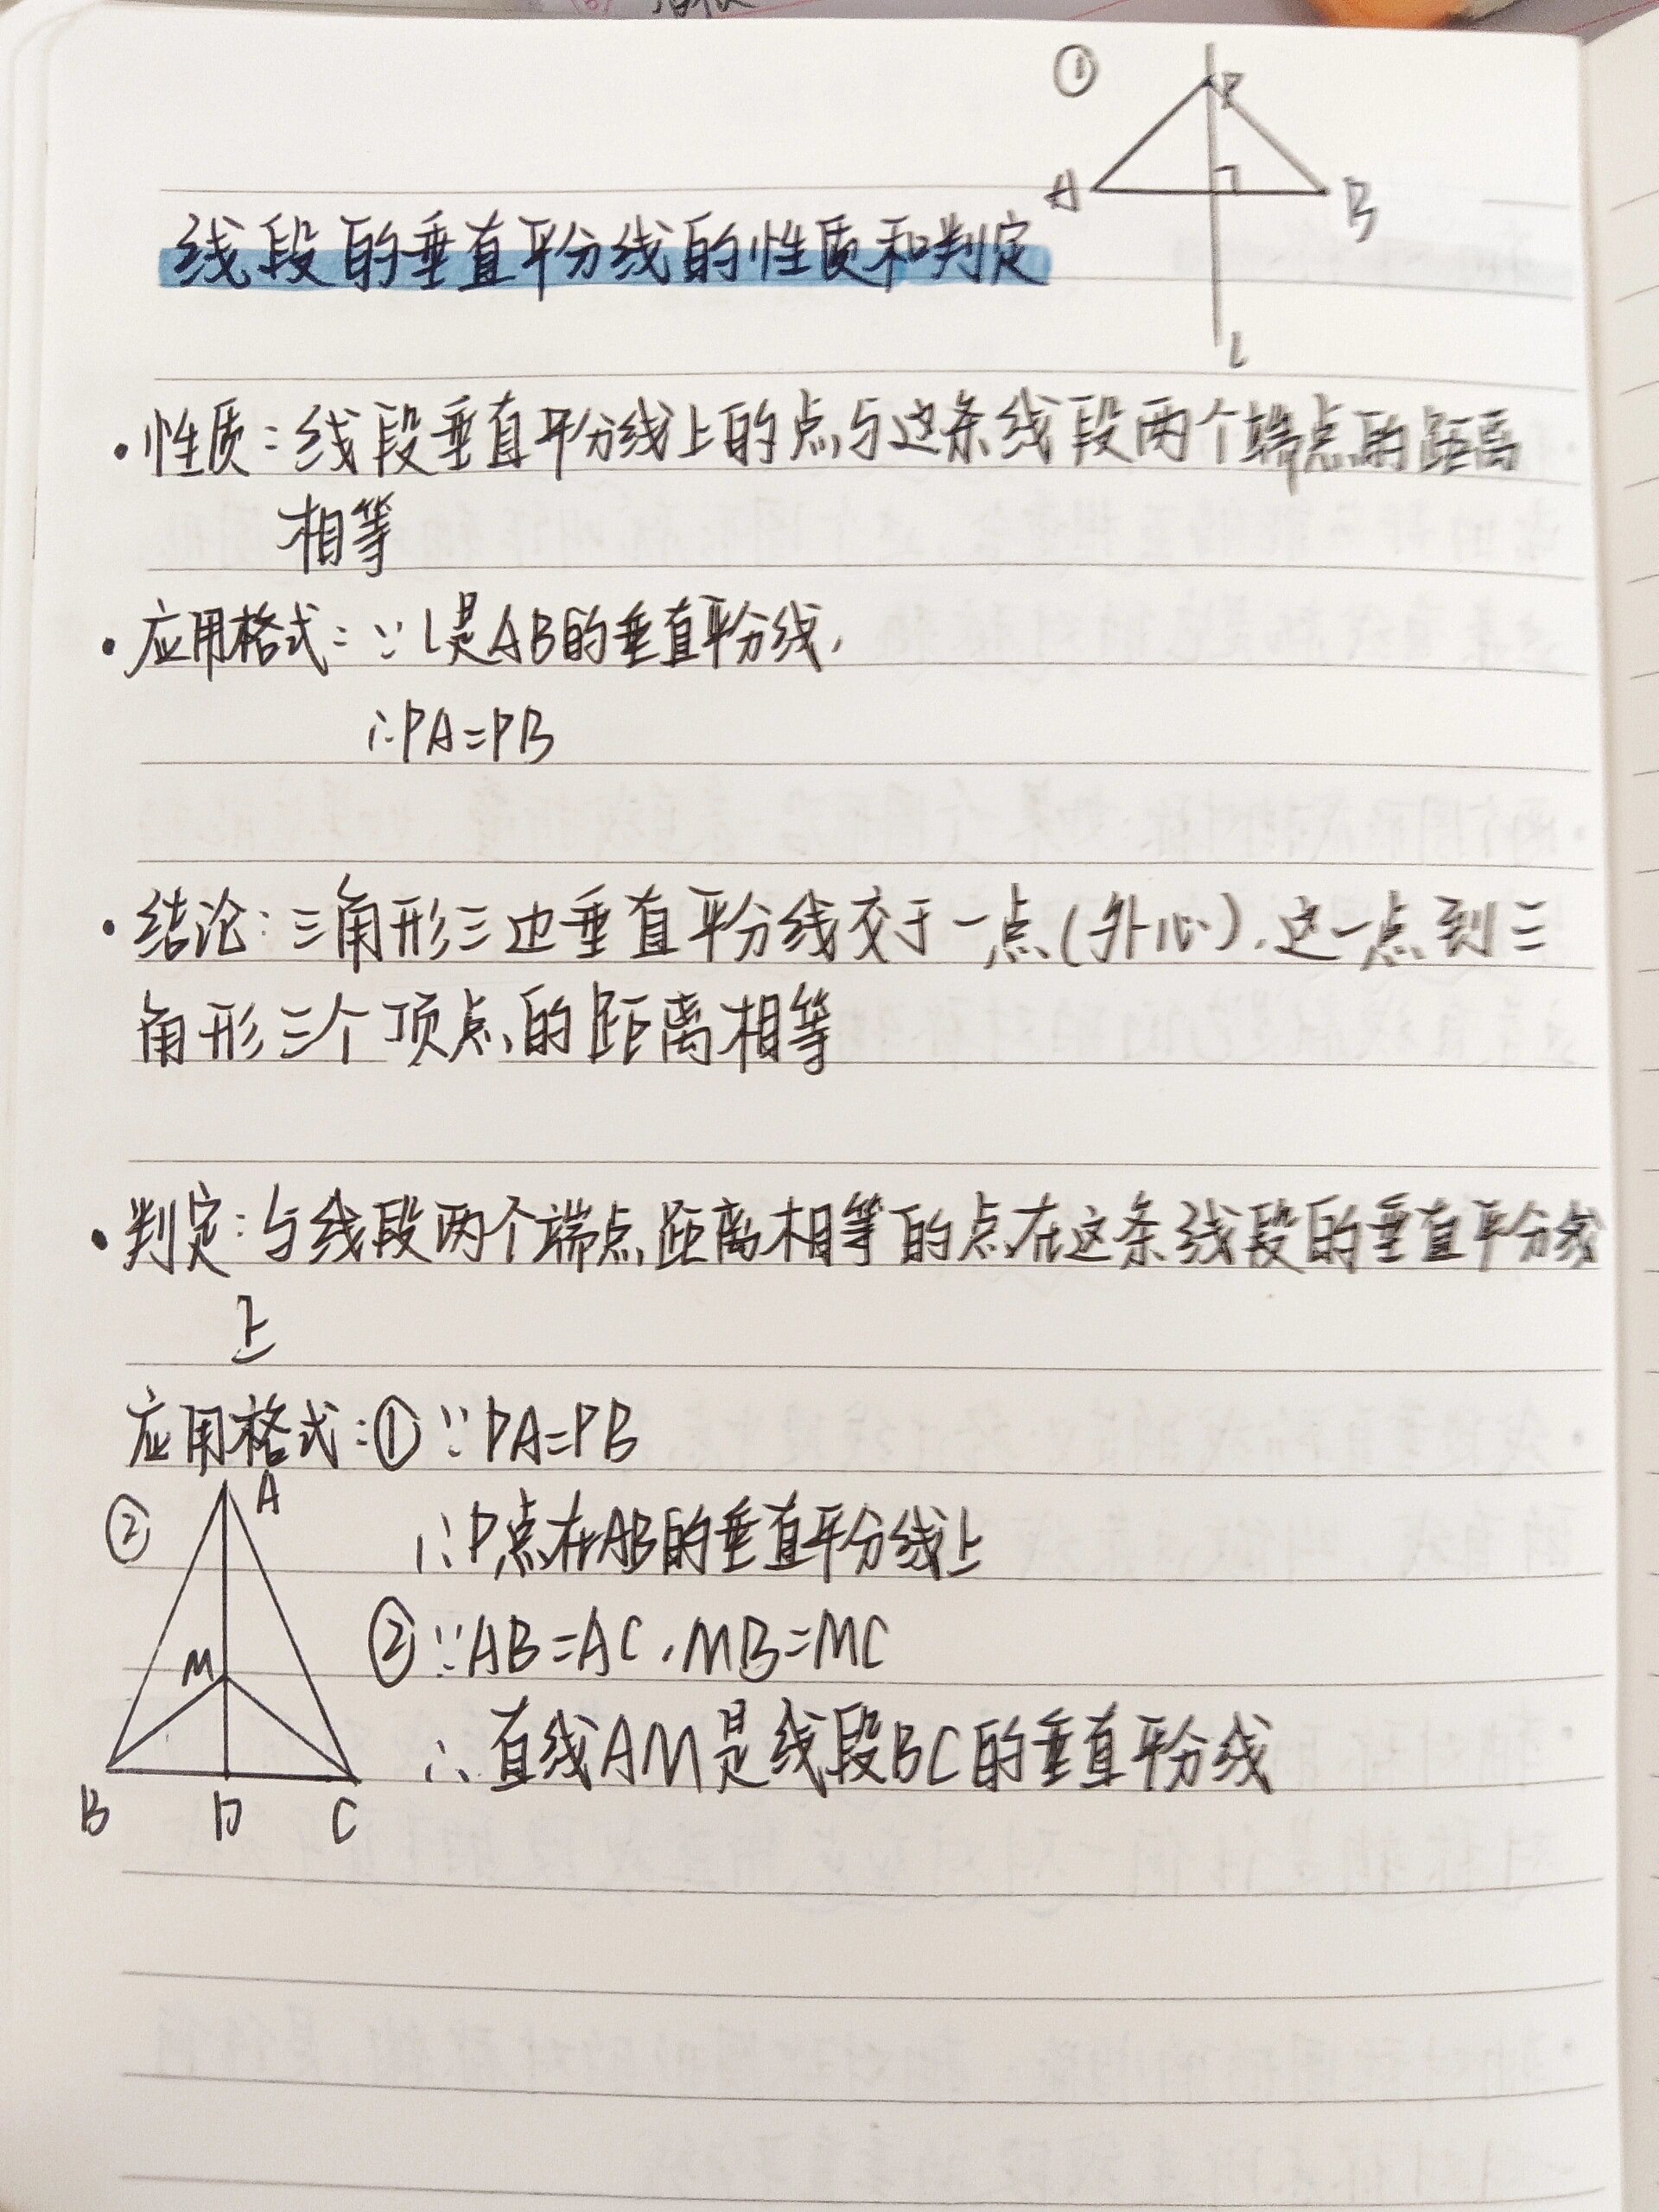 ①
P
A
B
线段的垂直平分线的性质和判定
L
·性质:线段垂直平分线上的点与这条线段两个端点的距离
相等
·应用格式:∵l是AB的垂直平分线,
∴PA=PB
·结论:三角形三边垂直平分线交于一点(外心),这一点到三
角形三个顶点的距离相等
·判定:与线段两个端点距离相等的点在这条线段的垂直平分线
上
应用格式:①∵PA=PB
∴P点在AB的垂直平分线上
②∵AB=AC,MB=MC
∴直线AM是线段BC的垂直平分线
②
A
M
B
D
C